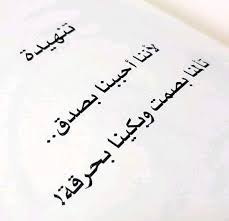 تنهيدة
لأننا أحببنا بصدق..
تألمنا بصمت وبكينا بحرقة!